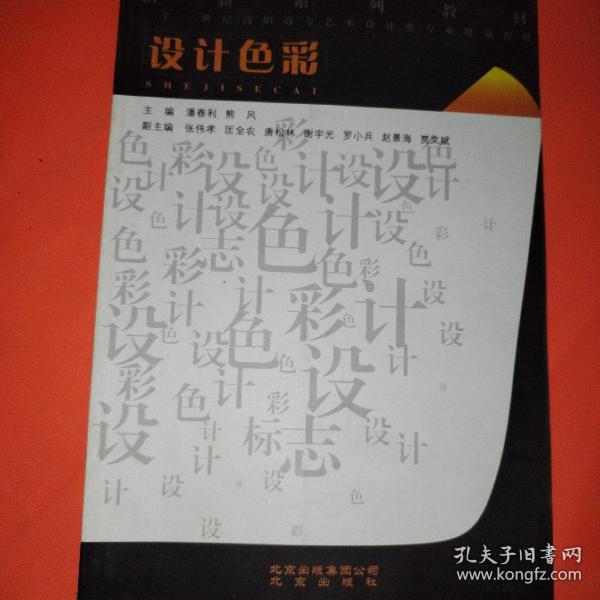 创新系列教材
二十一世纪高职高专艺术设计类专业规划教材
设计色彩
SHEJISECAI
主 编 潘春利 熊 风
副主编 张伟孝 匡全农 唐松林 谢宇光 罗小兵 赵景海 贾文斌
色彩设计设设色计
设计色计设志色计设色彩计
色彩计色彩设
彩计计彩色计设
设色设色色设计设
彩计计彩设设
设色计标志设计
计计设计色彩
北京出版集团公司
北京出版社
孔夫子旧书网
www.kongfz.com